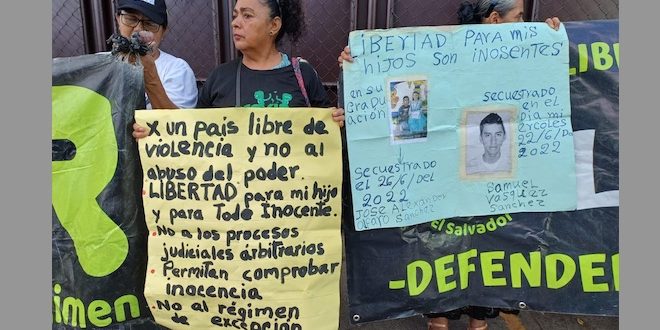 R
égimen
X un país libre de
violencia y no al
abuso del poder.
• LIBERTAD para mi hijo
y para Todo Inocente.
• No a los procesos
judiciales árbitrarios
• Permitan comprobar
inocencia
No al régimen
de excepción
LIBERTAD PARA MIS
HIJOS SON INOSENTES
en su
GRADU
ACIÓN
SECUESTRADO
EL 26/6/DEL
2022
JOSE Alexander
Olfaro Sanchez
SECUESTRADO
en EL
DIA MI
ERCOLES
22/6/DE
2022
SAMUEL
VASQUEZ
SANCHEZ
LIB
El Salvador
-DEFENDER